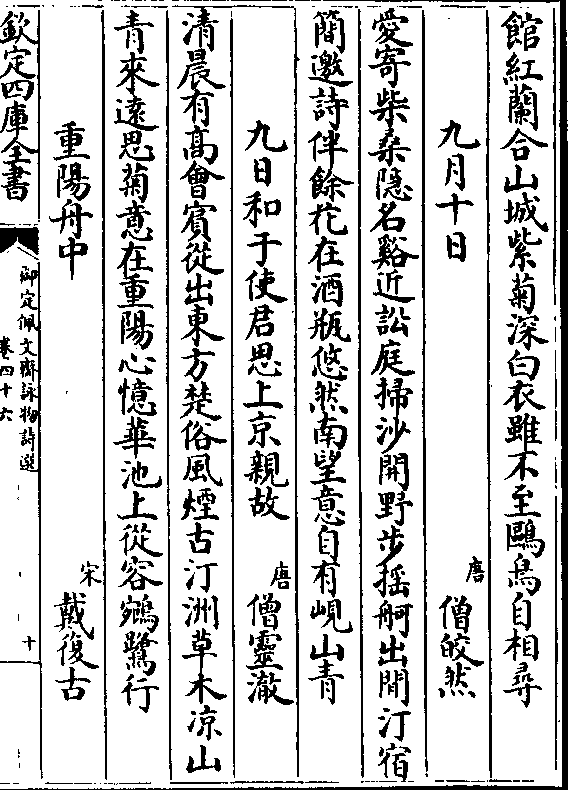 館紅蘭合山城紫菊深白衣雖不至鷗鳥自相尋
九月十日 唐 僧皎然
愛寄柴桑隱名谿近訟庭掃沙開野步搖舸出閒汀宿
簡邀詩伴餘花在酒瓶悠然南望意自有峴山青
九日和于使君思上京親故 唐 僧靈澈
清晨有高會賓從出東方楚俗風煙古汀洲草木凉山
青來遠思菊意在重陽心憶華池上從容鵷鷺行
重陽舟中 宋 戴復古
欽定四庫全書
御定佩文齋詠物詩選
卷四十六
十